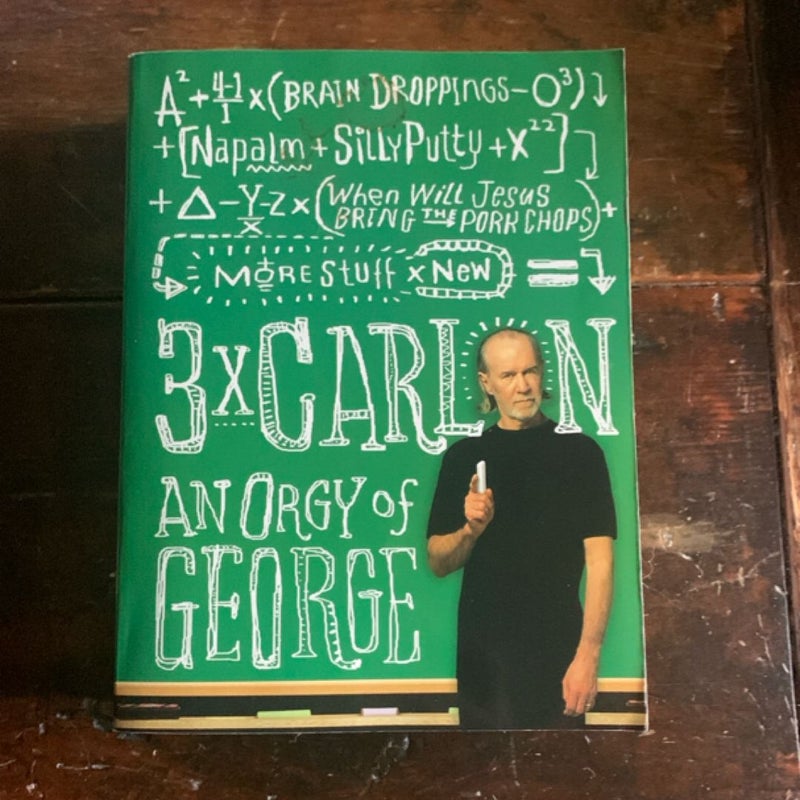 A²+4-1/1×(BRAIN DROPPINGS-O³)
+[Napalm+SillyPutty+X²²]
+△-Y/X-Z×(When Will Jesus BRING THE PORK CHOPS)+
MORE Stuff × NeW =
3×CARLIN
AN ORGY of
GEORGE